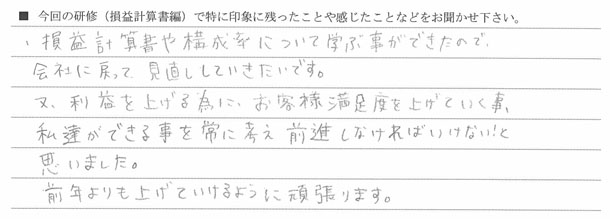 ■ 今回の研修（損益計算書編）で特に印象に残ったことや感じたことなどをお聞かせ下さい。
、損益計算書や構成率について学ぶ事ができたので、
会社に戻って、見直ししていきたいです。
又、利益を上げる為に、お客様満足度を上げていく事、
私達ができる事を常に考え前進しなければいけない!と
思いました。
前年よりも上げていけるように頑張ります。